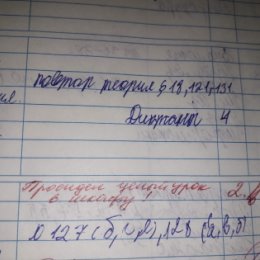 повтор теория § 18, 121, 131
Диктант 4
Просидел целый урок 2
в шкафу!
№ 127 (б, г, д), 128 (а, в, б)